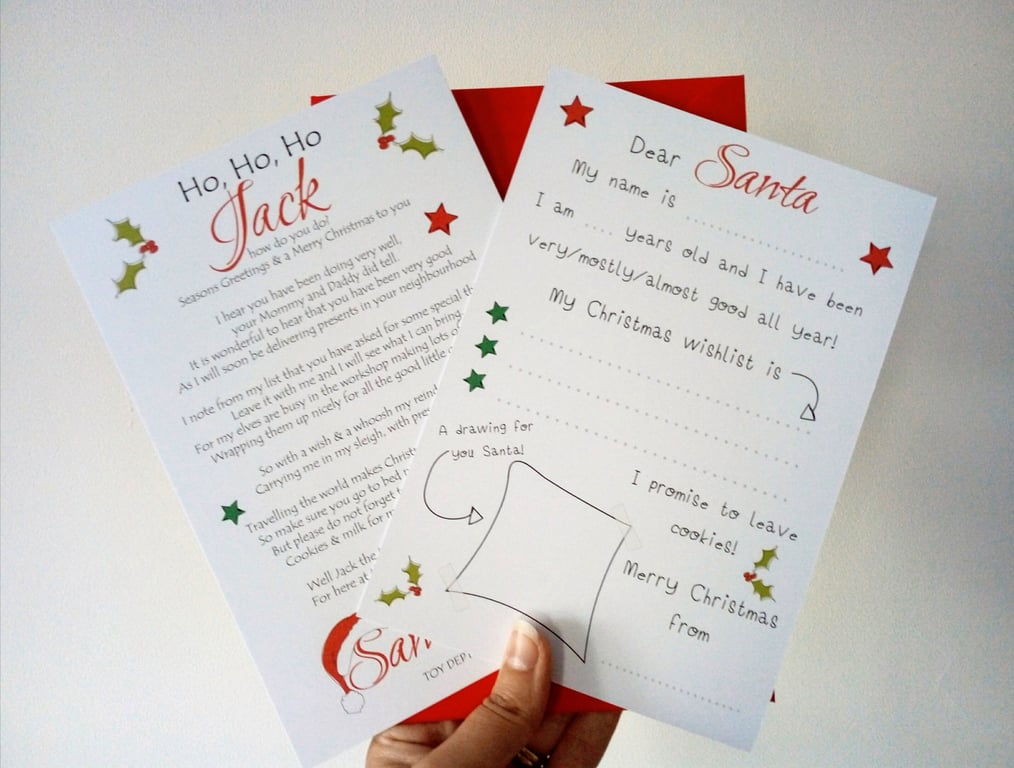 Ho, Ho, Ho
Jack
how do you do?
Seasons Greetings & a Merry Christmas to you
I hear you have been doing very well,
your Mommy and Daddy did tell.
It is wonderful to hear that you have been very good
As I will soon be delivering presents in your neighbourhood
I note from my list that you have asked for some special th
Leave it with me and I will see what I can bring
For my elves are busy in the workshop making lots o
Wrapping them up nicely for all the good little
So with a wish & a whoosh my rein
Carrying me in my sleigh, with pres
Travelling the world makes Christ
So make sure you go to bed
But please do not forget
Cookies & milk for m
Well Jack the
For here at
San
TOY DEP
Dear Santa
My name is ....................
I am ..... years old and I have been
very/mostly/almost good all year!
My Christmas wishlist is
A drawing for
you Santa!
I promise to leave
cookies!
Merry Christmas
from